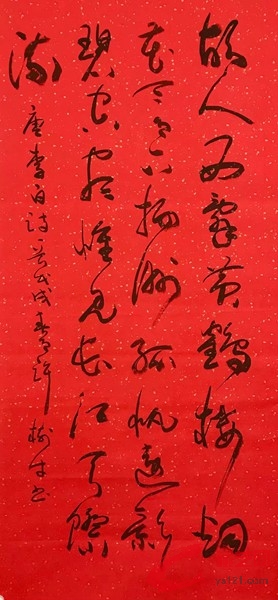 故人西辭黃鶴樓烟
花三月下揚州孤帆遠影
碧空盡惟見長江天際
流
唐李白詩一首戊戌春
書